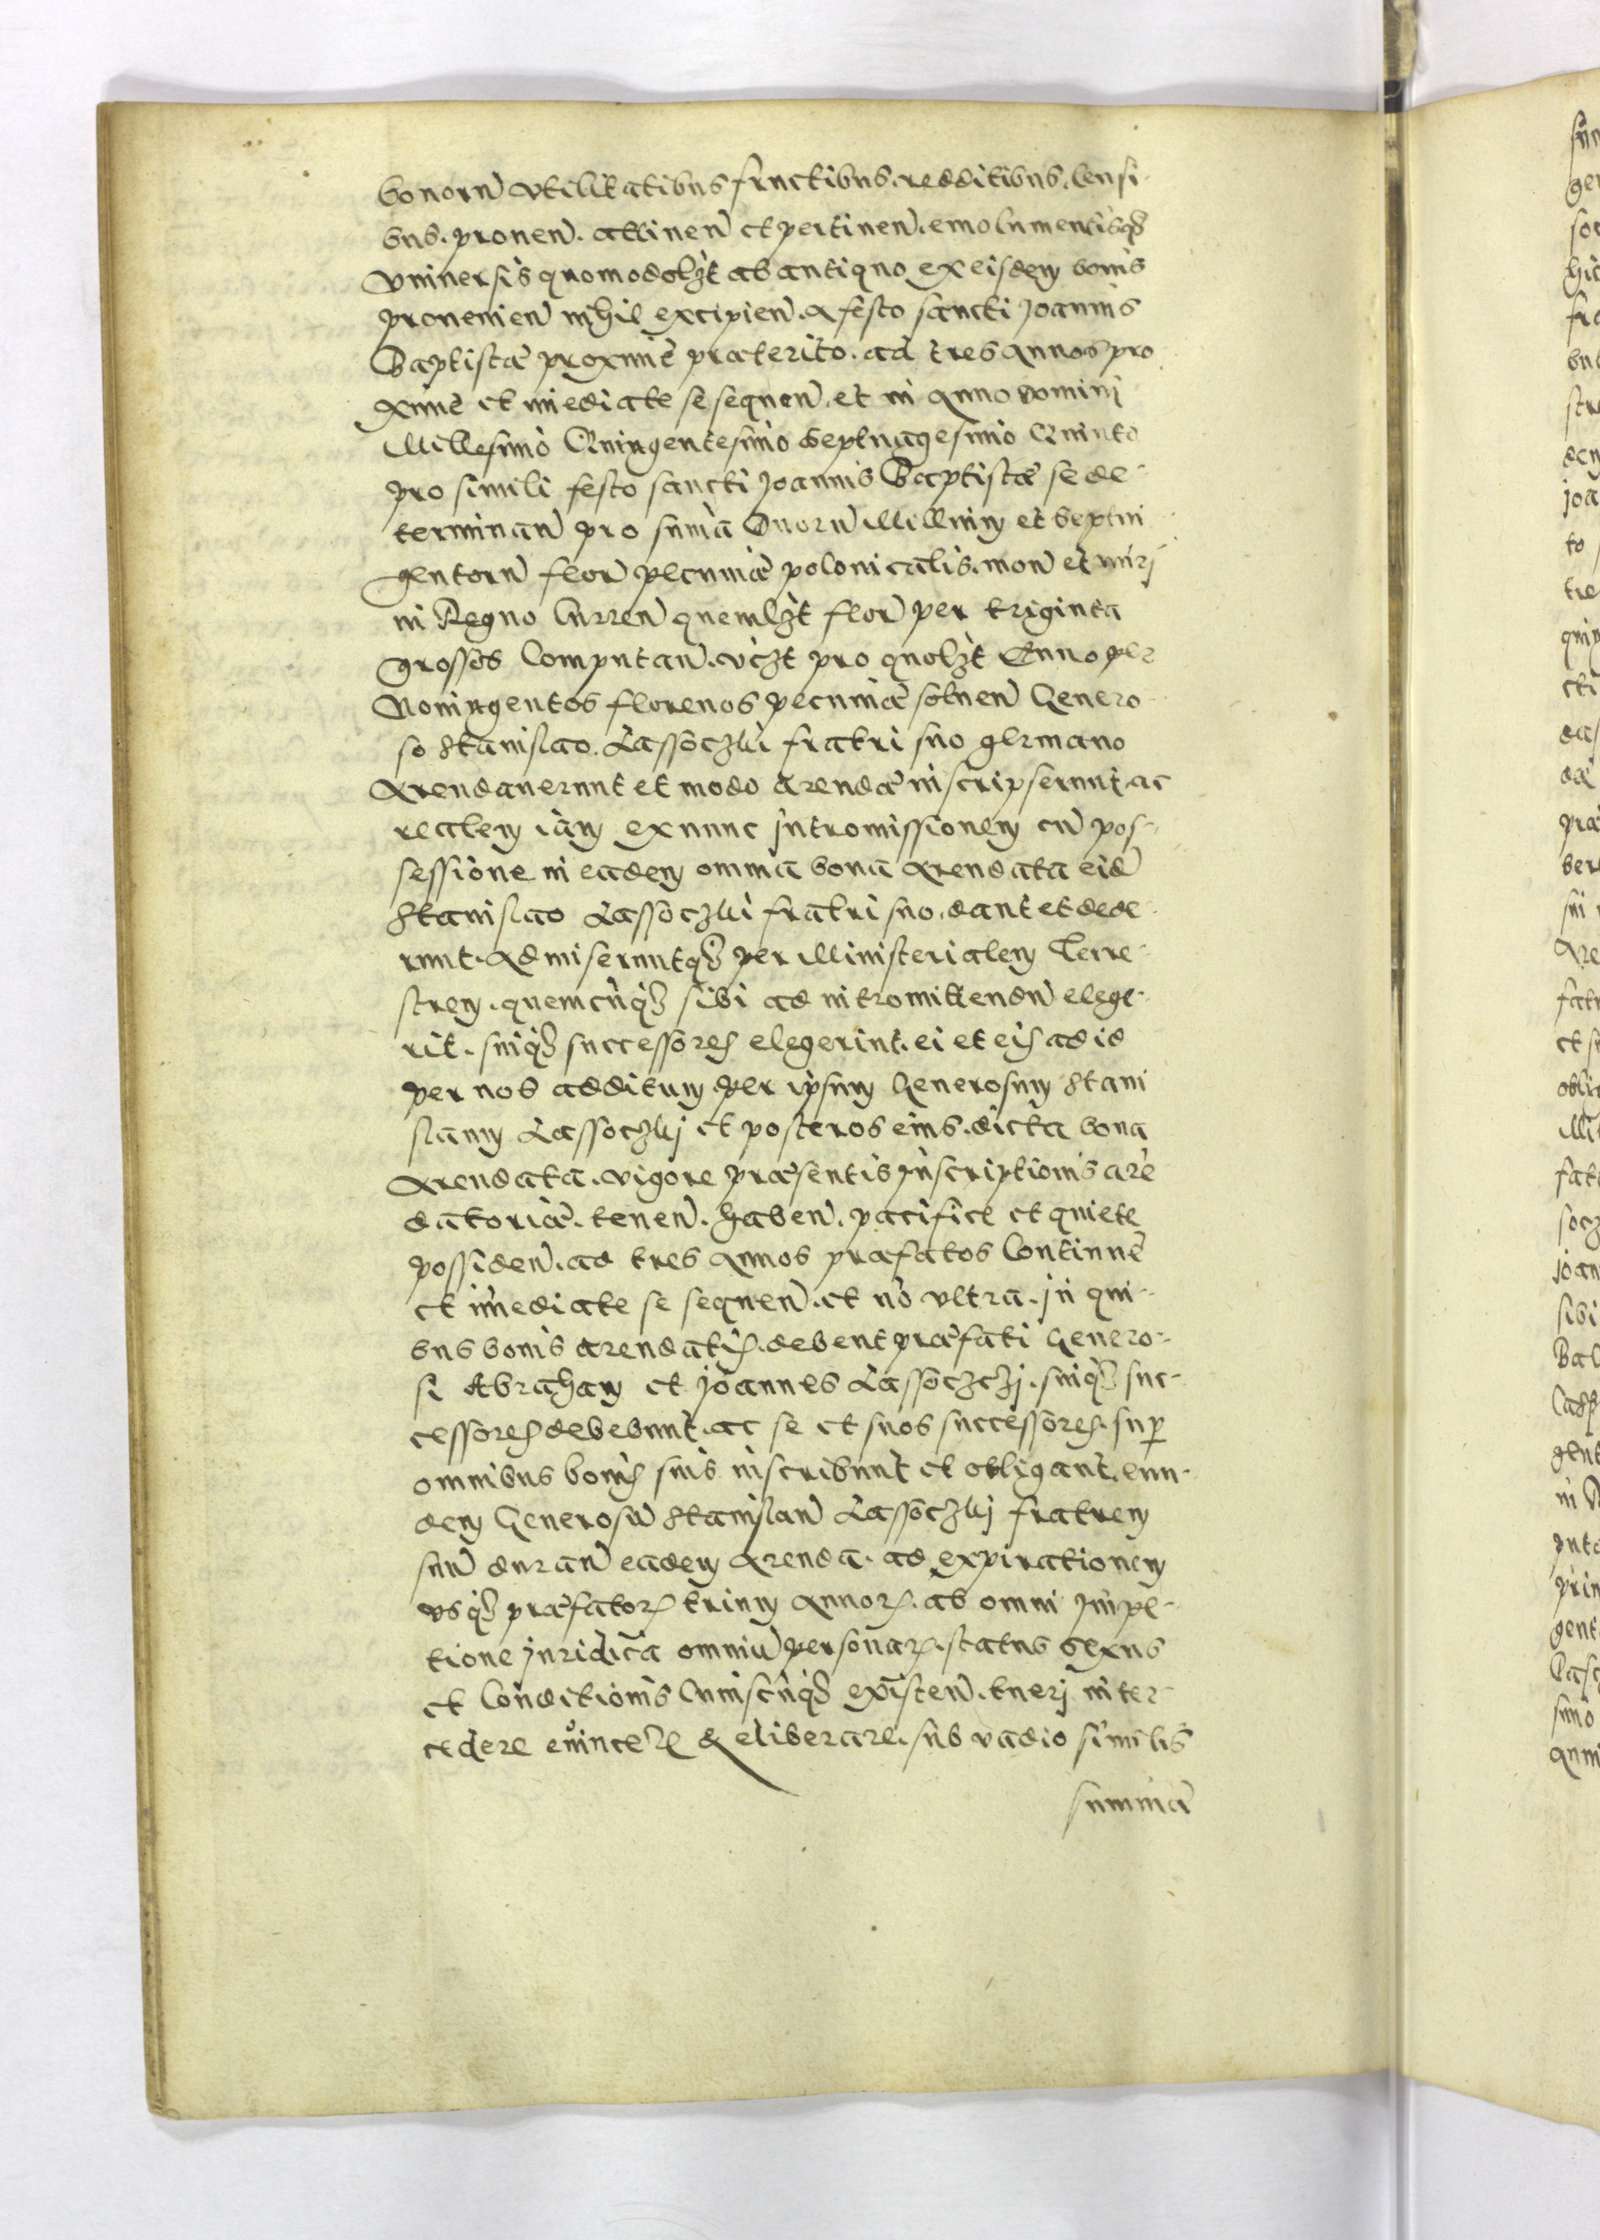 bonoru(m) utilitatibus fructibus. redditibus. Censi
bus. proven. attinen et pertinen. emolumentisq(ue)
Universis quomodolzt ab antiquo ex eisdem bonis
provenien nihil excipien. A festo sancti Joannis
Baptistæ proximè præterito. ad tres Annos pro
ximè et imediate se sequen. et in Anno Domini
Millesimo Quingentesimo Septuagesimo Quinto
pro simili festo sancti Joannis Baptistæ se de-
terminan pro summa Duoru Millium et Septin
gentoru flor pecuniæ polonicalis. mon et nu͂rj
in Regno Curren quemlzt flor per triginta
grossos Computan. vczt pro quolzt Anno per
Noningentos florenos pecuniæ solven Genero-
so Stanislao. Lassoczki fratri suo germano
Arendaverunt et modo Arendæ inscripserunt. ac
realem iam ex nunc intromissionem cu pos-
sessione in eadem omnia bona Arendata eid
Stanislao Lassoczki fratri suo. dant et dede-
runt. Admiseruntq(ue) per Ministerialem Terre-
strem. quemcunq(ue) sibi ad intromittendu elege-
rit. suiq(ue) successores elegerint. ei et eis ad id
per nos additum. per ipsum Generosum Stani
slaum Lassoczkj et posteros eius. dicta bona
Arendata. vigore præsentis Inscriptionis are
datoriæ. tenen. haben. pacifice et quiete
possiden. ad tres Annos præfatos Continuè
et imediate se sequen. et no ultra. in qui-
bus bonis arendatis. debent præfati Genero-
si Abraham et Joannes Lassoczczj. suiq(ue) suc-
cessores debebunt. ac se et suos successores. sup
omnibus bonis suis inscribunt et obligant. eun-
dem Generosu Stanislau Lassoczkj fratrem
suu duran eadem Arenda. ad expirationem
usq(ue) præfator(um) trium Annor(um). ab omni Impe-
tione juridica omniu personar(um). status sexus
et Conditionis Cuiuscunq(ue) existen. tueri inter-
cedere evincere & eliberare. sub vadio similis
summæ